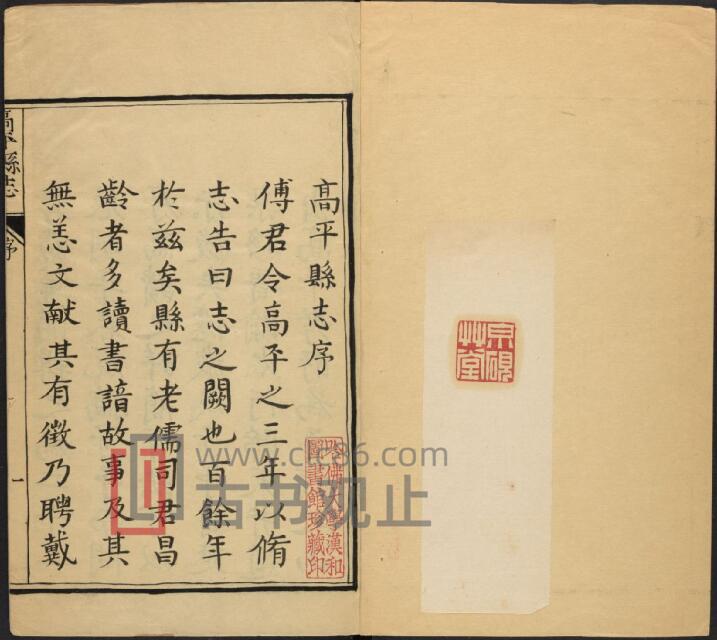 高平縣志序
傅君令高平之三年以脩
志告曰志之闕也百餘年
於兹矣縣有老儒司君昌
齡者多讀書諳故事及其
無恙文献其有徵乃聘戴
高平縣志
序
一
哈佛大學漢和
圖書館珍藏印
www.clc86.com
古书观止